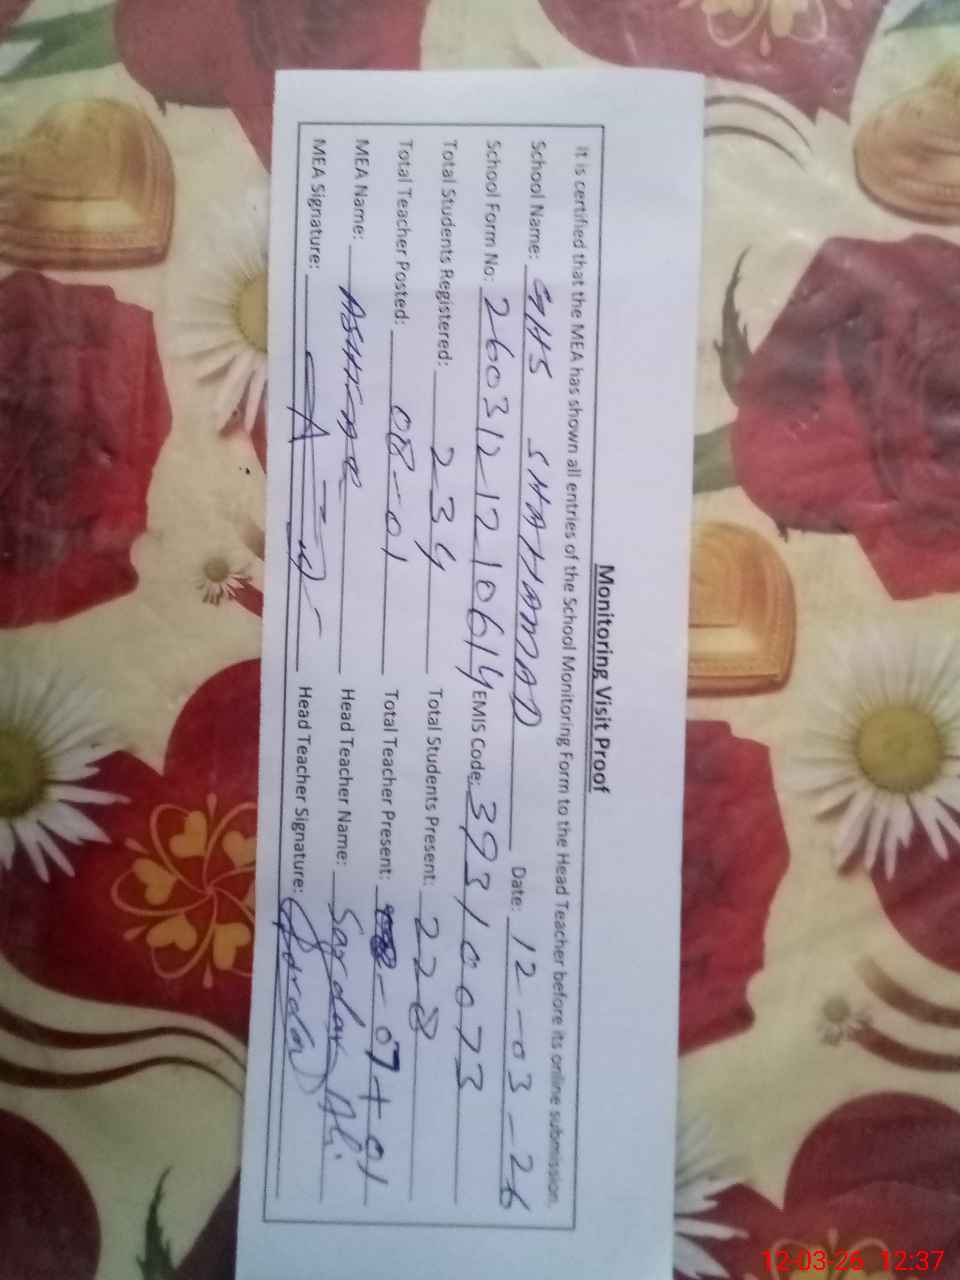 Monitoring Visit Proof
It is certified that the MEA has shown all entries of the School Monitoring Form to the Head Teacher before its online submission.
School Name: GHS SHAHAMAD Date: 12-03-26
School Form No: 260312121210614 EMIS Code: 39310073
Total Students Registered: 234 Total Students Present: 228
Total Teacher Posted: 08-01 Total Teacher Present: - 07+01
MEA Name: Head Teacher Name: Sardar Ali
MEA Signature: Head Teacher Signature: Sardar
12-03-26 12:37